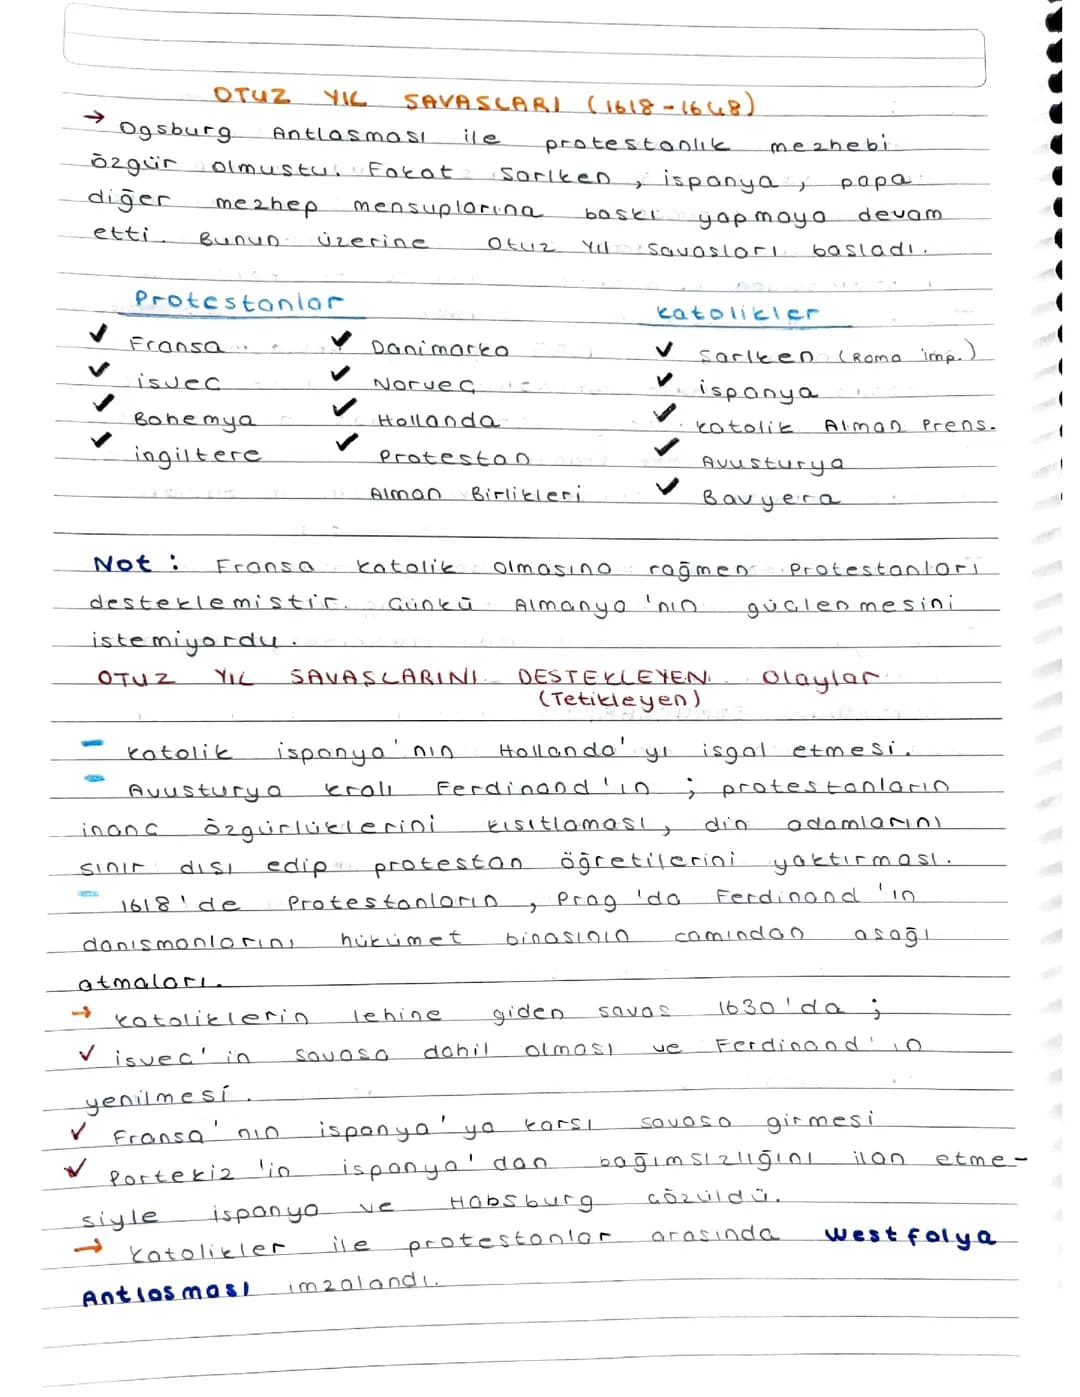 OTUZ YIL SAVASLARI (1618-1648)
→ Ogsburg Antlasması ile protestanlık mezhebi
özgür olmustu. Fakat Sarlken, ispanya, papa
diğer mezhep mensuplarına baskı yapmaya devam
etti. Bunun üzerine Otuz Yıl Savasları basladı.
Protestanlar
Katolikler
✓ Fransa ✓ Danimarka ✓ Sarlken (Roma imp.)
✓ isvec ✓ Norvec ✓ ispanya
✓ Bohemya ✓ Hollanda ✓ Katolik Alman Prens.
✓ ingiltere ✓ Protestan ✓ Avusturya
Alman Birlikleri ✓ Bavyera
Not : Fransa katolik olmasına rağmen Protestanları
desteklemistir. Cünkü Almanya 'nın güclenmesini
istemiyordu.
OTUZ YIL SAVASLARINI DESTEKLEYEN Olaylar
(Tetikleyen)
- Katolik ispanya'nın Hollanda'yı isgal etmesi.
- Avusturya kralı Ferdinand'ın ; protestanların
inanc özgürlüklerini kısıtlaması, din adamlarını
sınır dısı edip protestan öğretilerini yaktırması.
- 1618'de Protestanların, Prag 'da Ferdinand 'ın
danısmanlarını hükümet binasının camından asağı
atmaları.
→ Katoliklerin lehine giden savas 1630'da ;
✓ isvec'in Savasa dahil olması ve Ferdinand'ın
yenilmesi.
✓ Fransa'nın ispanya'ya karsı savasa girmesi
✓ Portekiz 'in ispanya'dan bağımsızlığını ilan etme-
siyle ispanya ve Habsburg cözüldü.
→ Katolikler ile protestanlar arasında Westfalya
Antlasması imzalandı.